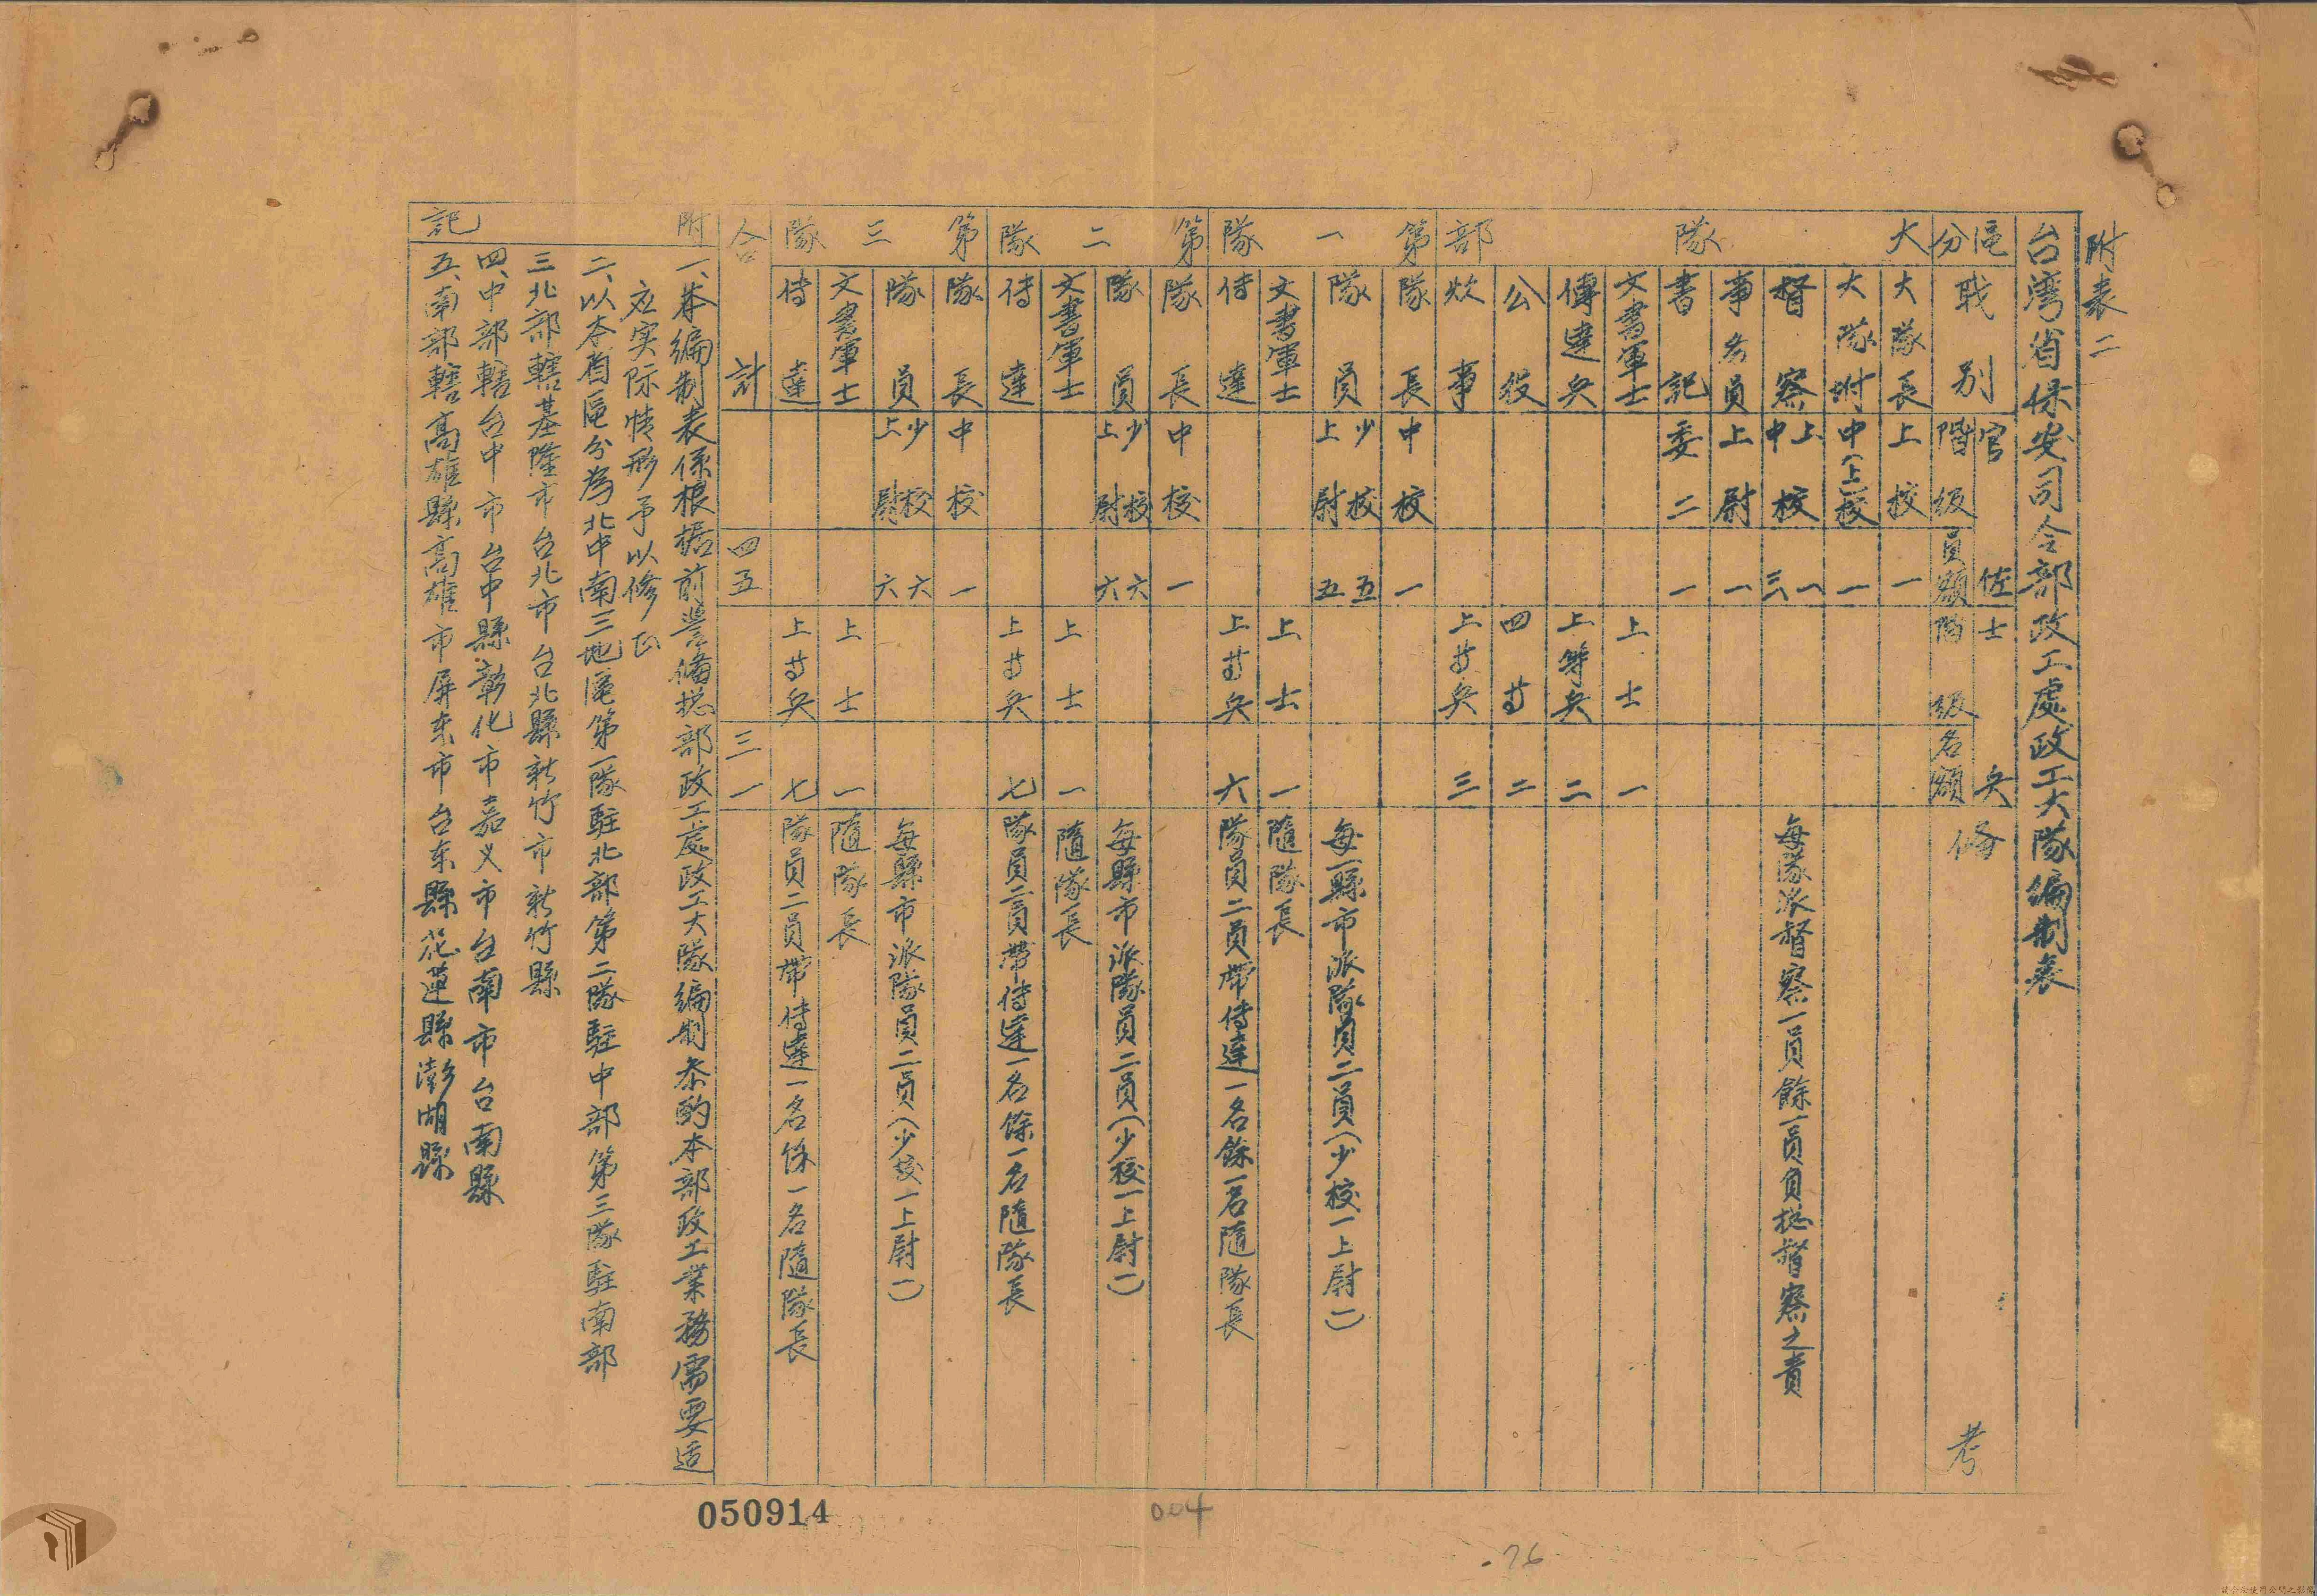 附表二
台湾省保安司令部政工處政工大隊編制表
區分
職別
官佐
階級
員額
士兵
階級
名額
備考
大隊部
大隊長 上校 一
大隊附 中(上)校 一
督察 上校 一 中校 三 每隊派督察一員餘一員負總督察之責
事务員 上尉 一
書記 委二 一
文書軍士 上士 一
傳達兵 上等兵 二
公役 四等 二
炊事 上等兵 三
第一隊
隊長 中校 一
隊員 少校 五 上尉 五 每一縣市派隊員二員(少校一上尉一)
文書軍士 上士 一 隨隊長
侍達 上等兵 六 隊員二員帶侍達一名餘一名隨隊長
第二隊
隊長 中校 一
隊員 少校 六 上尉 六 每縣市派隊員二員(少校一上尉一)
文書軍士 上士 一 隨隊長
侍達 上等兵 七 隊員二員帶侍達一名餘一名隨隊長
第三隊
隊長 中校 一
隊員 少校 六 上尉 六 每縣市派隊員二員(少校一上尉一)
文書軍士 上士 一 隨隊長
侍達 上等兵 七 隊員二員帶侍達一名餘一名隨隊長
合計 四五 三一
附記
一、本編制表係根据前警備总部政工處政工大隊編制参酌本部政工業務需要适
应实际情形予以修正
二、以本省區分為北中南三地區第一隊駐北部第二隊駐中部第三隊駐南部
三北部轄基隆市台北市台北縣新竹市新竹縣
四、中部轄台中市台中縣彰化市嘉义市台南市台南縣
五、南部轄高雄縣高雄市屏东市台东縣花蓮縣澎湖縣
050914
004
76